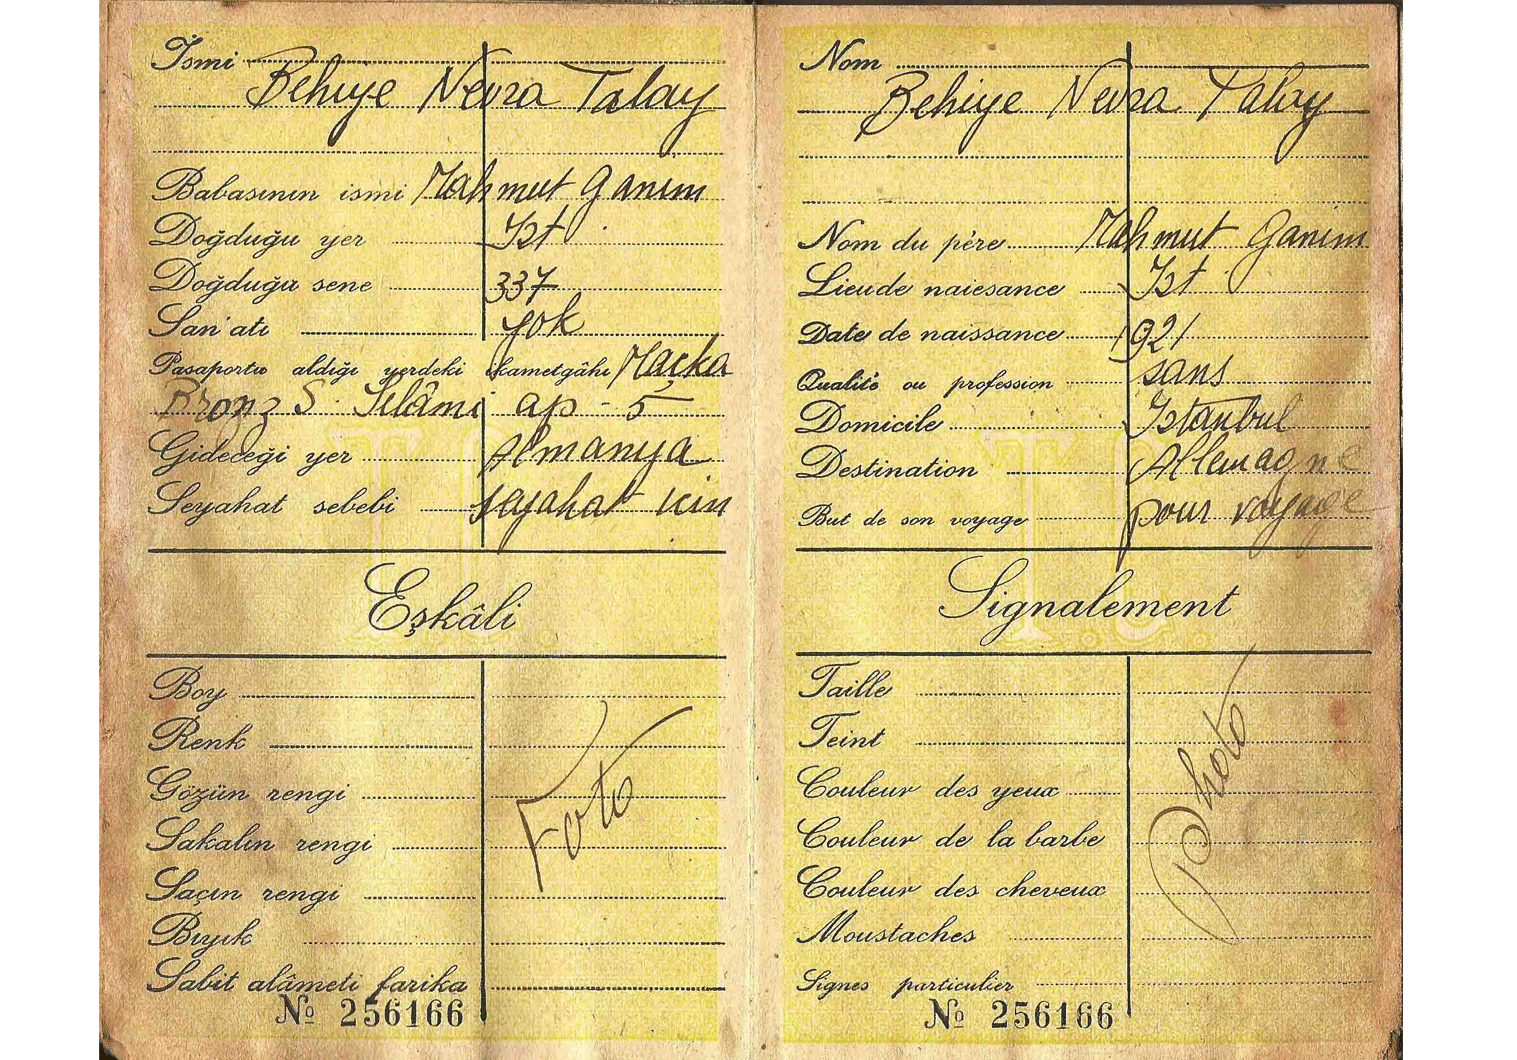 İsmi
Behiye Nevra Talay
Babasının ismi Mahmut Ganim
Doğduğu yer İst.
Doğduğu sene 337
San'atı yok
Pasaportu aldığı yerdeki ikametgâhı Maçka
Bronz S. Selâmi ap - 5
Gideceği yer Almanya
Seyahat sebebi seyahat için
Eşkâli
Boy
Renk
Gözün rengi
Sakalın rengi
Saçın rengi
Bıyık
Foto
Sabit alâmeti farika
No 256166
Nom
Behiye Nevra Talay
Nom du père Mahmut Ganim
Lieude naiesance İst.
Date de naissance 1921
Qualité ou profession sans
Domicile İstanbul
Destination Allemagne
But de son voyage pour voyage
Signalement
Taille
Teint
Couleur des yeux
Couleur de la barbe
Couleur des cheveux
Moustaches
Photo
Signes particulier
No 256166
T.C.
T.C.